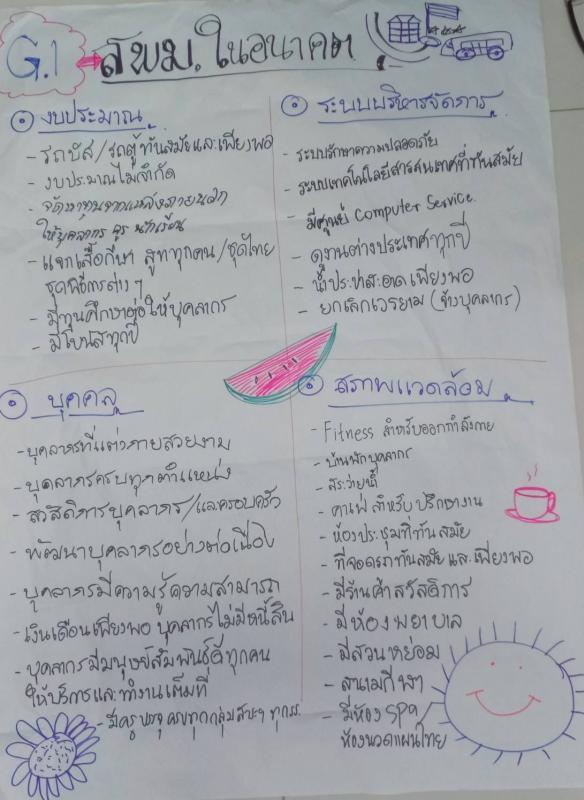 G.1
สพม. ในอนาคต
งบประมาณ
- รถบัส/รถตู้ทันสมัยและเพียงพอ
- งบประมาณไม่จำกัด
- จัดหาทุนจากแหล่งภายนอก
ให้บุคลากร ครู นักเรียน
- แจกเสื้อกีฬา สูททุกคน/ชุดไทย
ชุดพิธีการต่าง ๆ
- มีทุนศึกษาต่อให้บุคลากร
- มีโบนัสทุกปี
ระบบบริหารจัดการ
- ระบบรักษาความปลอดภัย
- ระบบเทคโนโลยีสารสนเทศที่ทันสมัย
- มีศูนย์ Computer Service.
- ดูงานต่างประเทศทุกปี
- น้ำประปาสะอาดเพียงพอ
- ยกเลิกเวรยาม (จ้างบุคลากร)
บุคคล
- บุคลากรที่แต่งกายสวยงาม
- บุคลากรครบทุกตำแหน่ง
- สวัสดิการบุคลากร/และครอบครัว
- พัฒนาบุคลากรอย่างต่อเนื่อง
- บุคลากรมีความรู้ความสามารถ
- เงินเดือนเพียงพอ บุคลากรไม่มีหนี้สิน
- บุคลากรมีมนุษย์สัมพันธ์ดีทุกคน
ให้บริการและทำงานเต็มที่
- มีครูบรรจุครบทุกกลุ่มสาระฯ ทุกรร.
สภาพแวดล้อม
- Fitness สำหรับออกกำลังกาย
- บ้านพักบุคลากร
- สระว่ายน้ำ
- คาเฟ่ สำหรับปรึกษางาน
- ห้องประชุมที่ทันสมัย
- ที่จอดรถทันสมัยและเพียงพอ
- มีร้านค้าสวัสดิการ
- มีห้องพยาบาล
- มีสวนหย่อม
- สนามกีฬา
- มีห้อง SPA
ห้องนวดแผนไทย